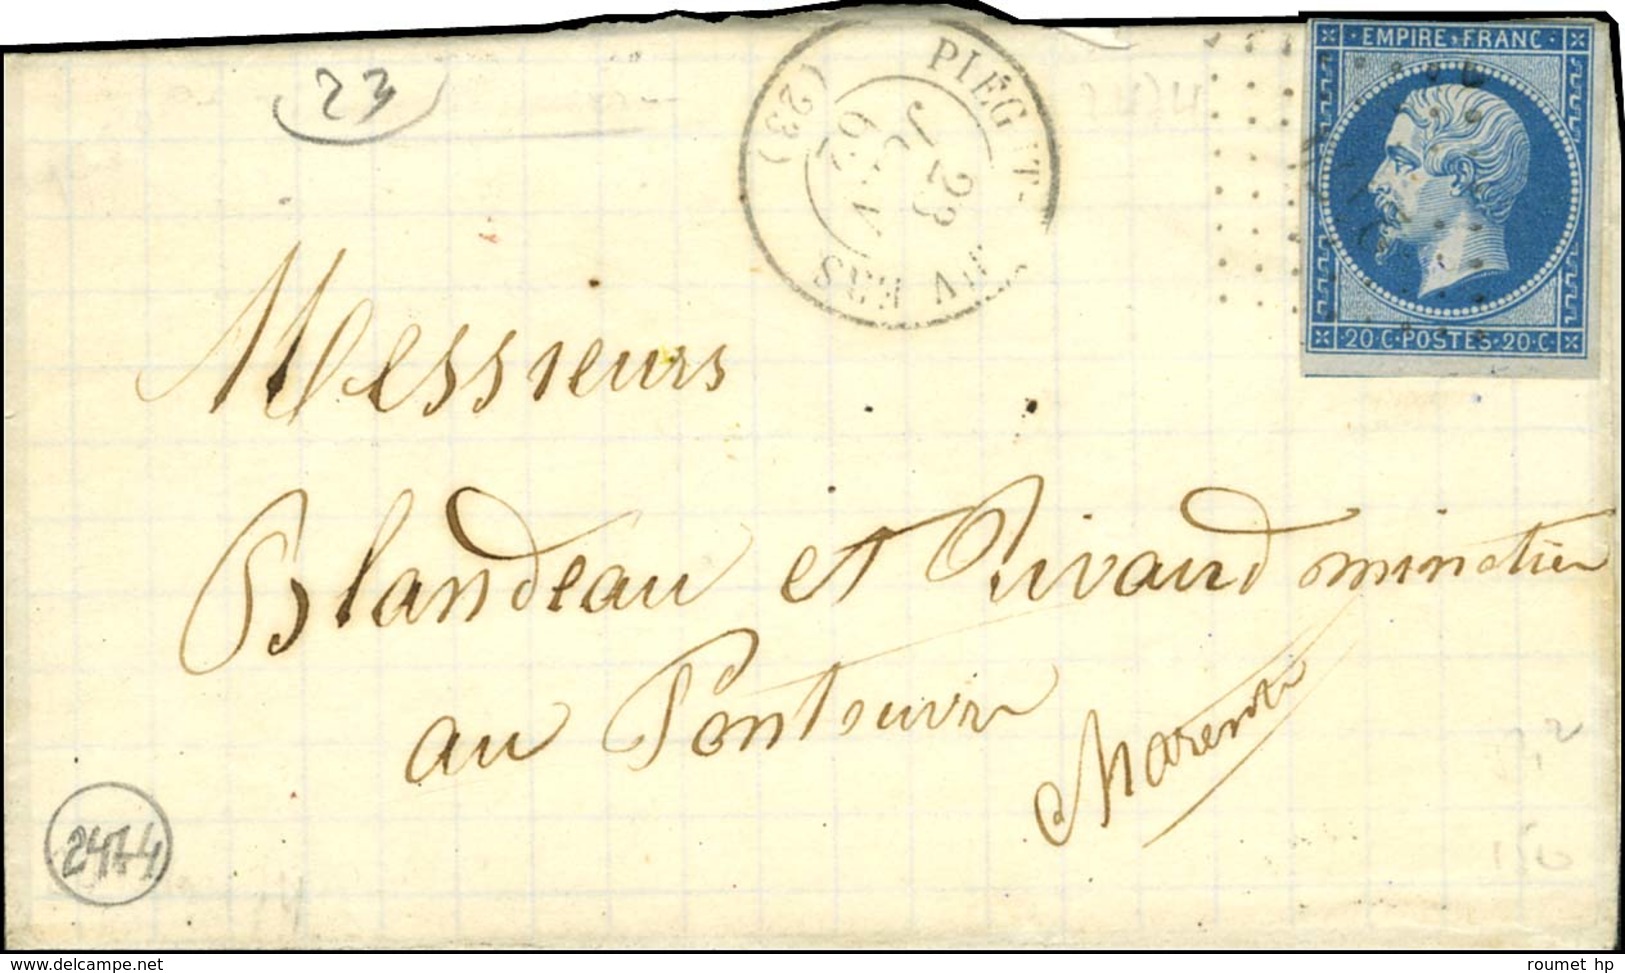 23
PIÉGUT-PLUVIERS
(23)
23
JUIN
62
EMPIRE FRANC
20 C POSTES 20 C
Messieurs
Blandeau et Rivaud minotier
au Pontouvre
2474
www.delcampe.net
roumet hp